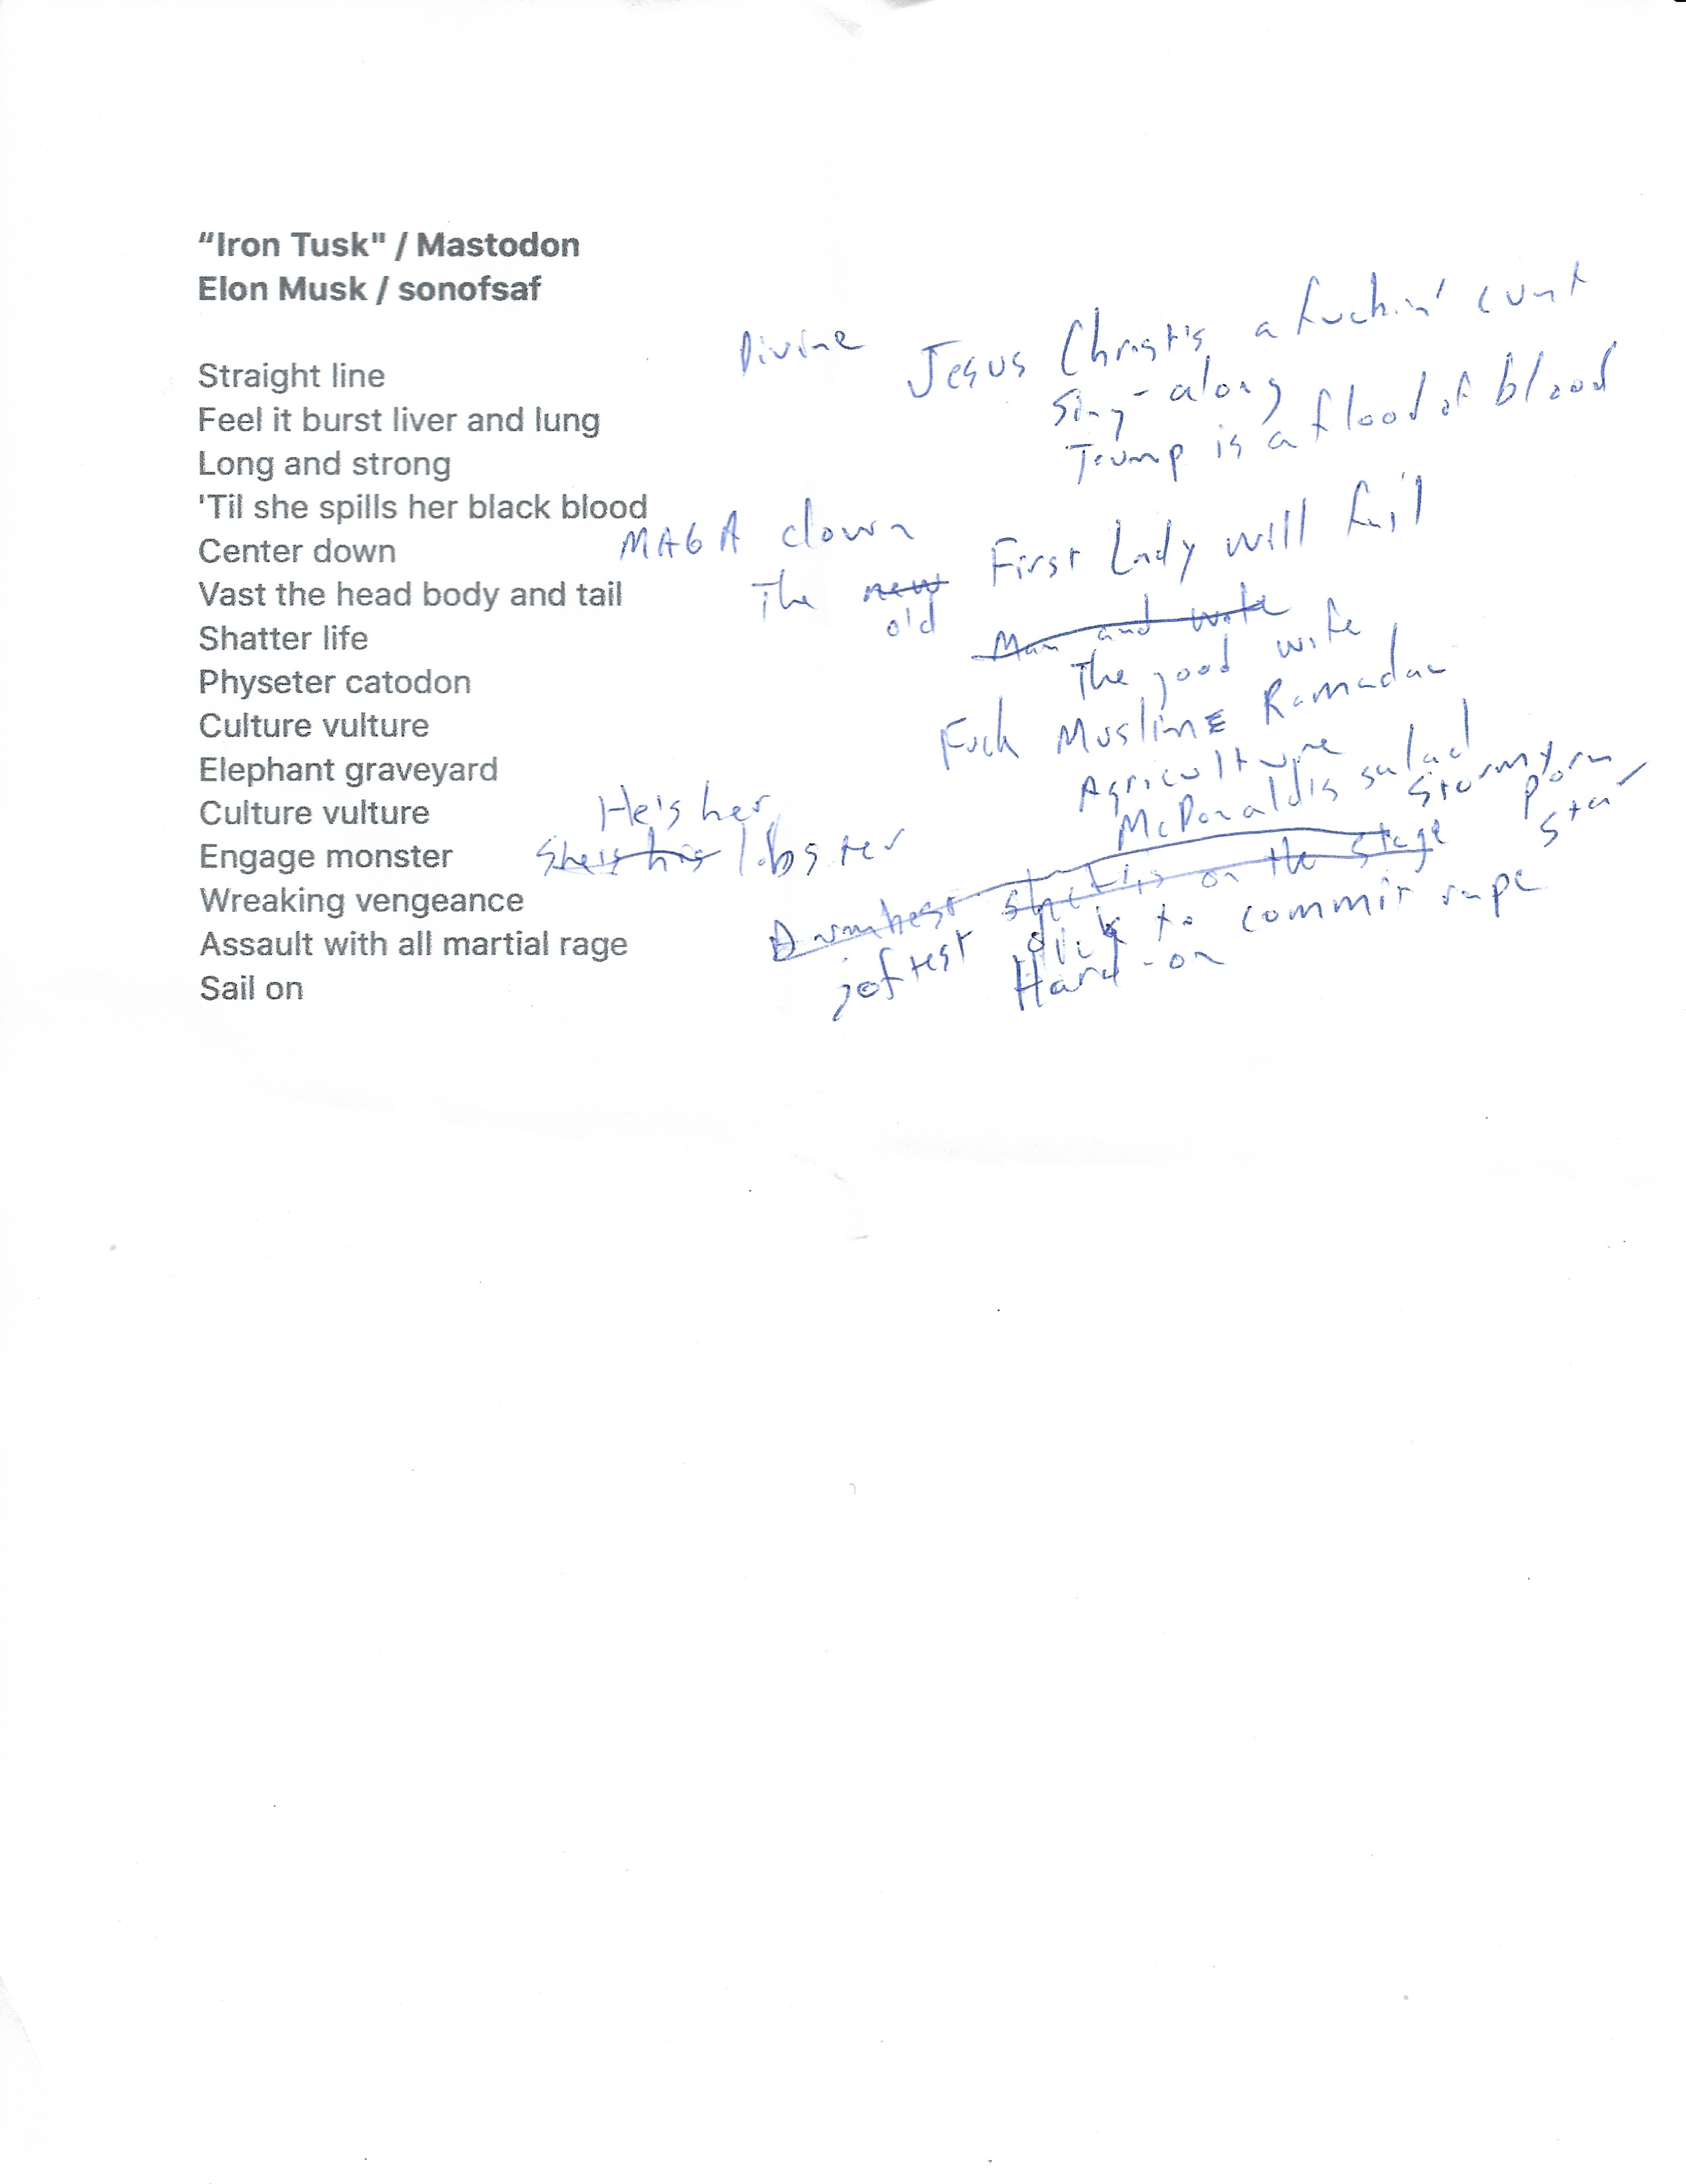 “Iron Tusk" / Mastodon
Elon Musk / sonofsaf
Straight line
Divine
Feel it burst liver and lung
Jesus Christ's a fuckin' cunt
Long and strong
Sing-along
'Til she spills her black blood
Trump is a flood of blood
Center down
MAGA clown
Vast the head body and tail
The new First Lady will fail
old
Shatter life
Man and wife
The good wife
Physeter catodon
Fuck MuslimE Ramadan
Culture vulture
Agriculture
Elephant graveyard
McDonald's salad
Stormy porn
star
Culture vulture
He's her
Engage monster
She's his lobster
Wreaking vengeance
Dumbest on the stage
Assault with all martial rage
softest dick to commit rape
Sail on
Hard-on